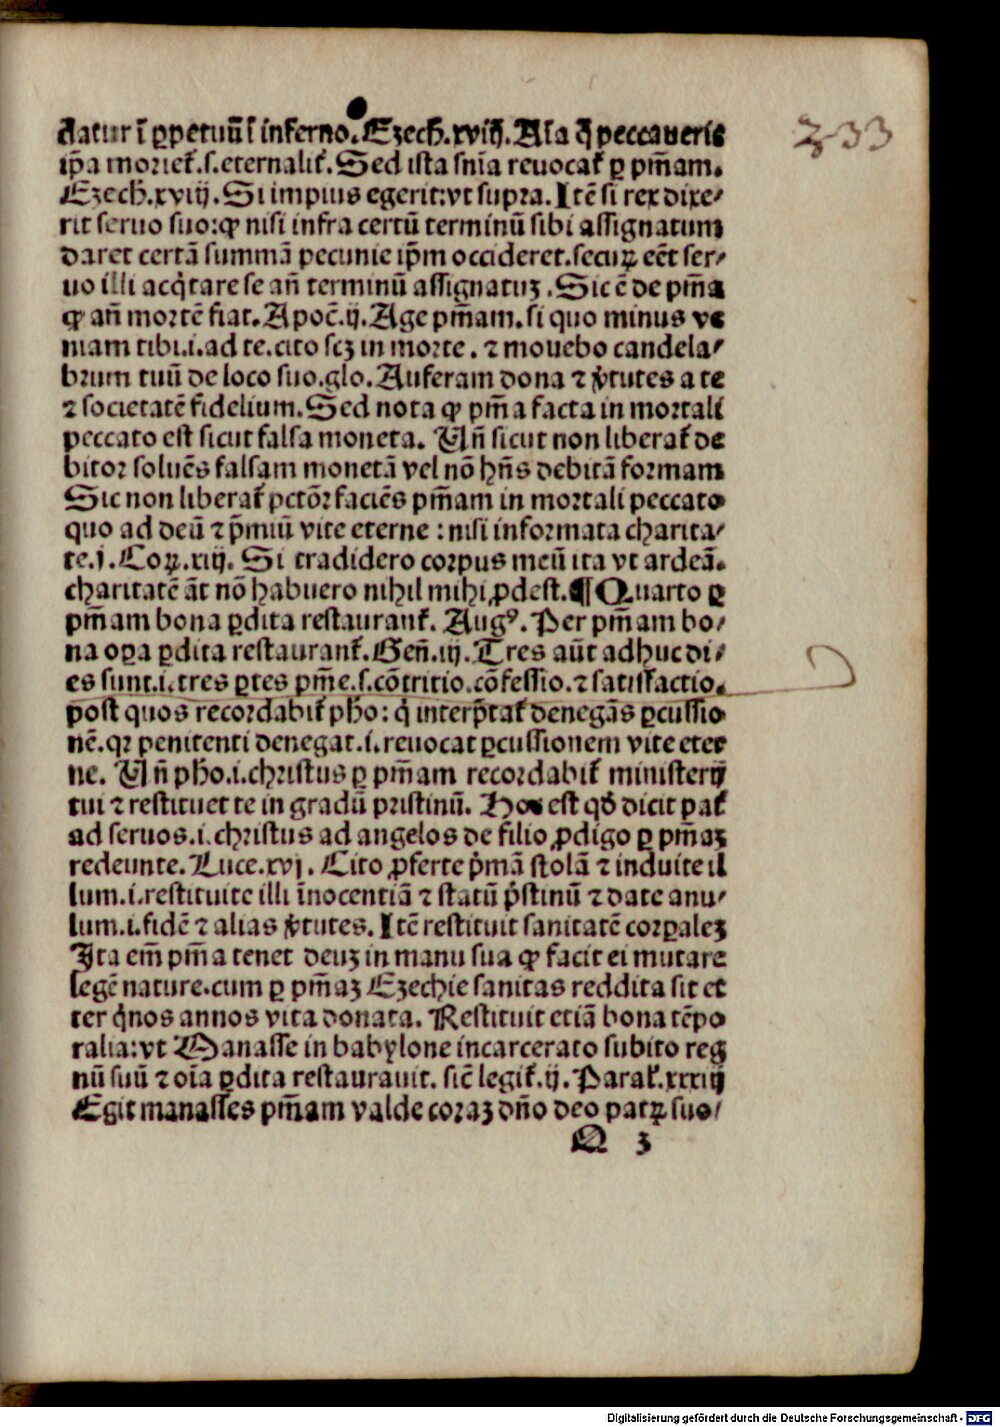 datur ī ꝑpetuū ī inferno. Ezech. xviij. Aīa q̄ peccaueris
ip̄a morieť.s.eternaliť. Sed ista sn̄ia reuocať ꝑ pm̄am.
Ezech. xviij. Si impius egerit: vt supra. Itē si rex dixe⸗
rit seruo suo: ꝙ nisi infra certū terminū sibi assignatum
daret certā summā pecunie ip̄m occideret. secuꝝ eēt ser⸗
uo illi acq̇tare se an̄ terminū assignatuꝫ. Sic ē de pm̄a
ꝙ an̄ mortē fiat. Apoc̄.ij. Age pm̄am. si quo minus ve
niam tibi.i. ad te. cito scꝫ in morte. ⁊ mouebo candela⸗
brum tuū de loco suo. glo. Auferam dona ⁊ v̇tutes a te
⁊ societatē fidelium. Sed nota ꝙ pm̄a facta in mortali
peccato est sicut falsa moneta. Un̄ sicut non liberať de
bitor soluēs falsam monetā vel nō hn̄s debitā formam
Sic non liberať pctōr faciēs pm̄am in mortali peccato
quo ad deū ⁊ p̄miū vite eterne: nisi informata charita⸗
te. j. Coꝝ. xiij. Si tradidero corpus meū ita vt ardeā.
charitatē āt nō habuero nihil mihi ꝓdest. ¶ Quarto ꝑ
pm̄am bona ꝑdita restauranť. Augꝰ. Per pm̄am bo⸗
na oꝑa ꝑdita restauranť. Gen̄. iij. Tres aūt adhuc di⸗
es sunt.i. tres ꝑtes pm̄e.s. cōtritio. cōfessio. ⁊ satisfactio.
post quos recordabiť pho: q̇ interp̄tať denegās ꝑcussio
nē. qꝛ penitenti denegat.i. reuocat ꝑcussionem vite eter
ne. Un̄ pho.i. christus ꝑ pm̄am recordabiť ministerij
tui ⁊ restituet te in gradū pristinū. Hoc est qđ dicit pať
ad seruos.i. christus ad angelos de filio ꝓdigo ꝑ pm̄aꝫ
redeunte. Luce. xvj. Cito ꝓferte ṗmā stolā ⁊ induite il
lum.i. restituite illi īnocentiā ⁊ statū ṗstinū ⁊ date anu⸗
lum.i. fidē ⁊ alias v̇tutes. Itē restituit sanitatē corꝑaleꝫ
Ita em̄ pm̄a tenet deuꝫ in manu sua ꝙ facit ei mutare
legē nature. cum ꝑ pm̄aꝫ Ezechie sanitas reddita sit et
ter q̇nos annos vita donata. Restituit etiā bona tēpo
ralia: vt Manasse in babylone incarcerato subito reg
nū suū ⁊ oīa ꝑdita restaurauit. sic̄ legiť. ij. Paral̕. xxxiij
Egit manasses pm̄am valde coraꝫ dn̄o deo patꝝ suo⸗
Q 3
233
Digitalisierung gefördert durch die Deutsche Forschungsgemeinschaft - DFG